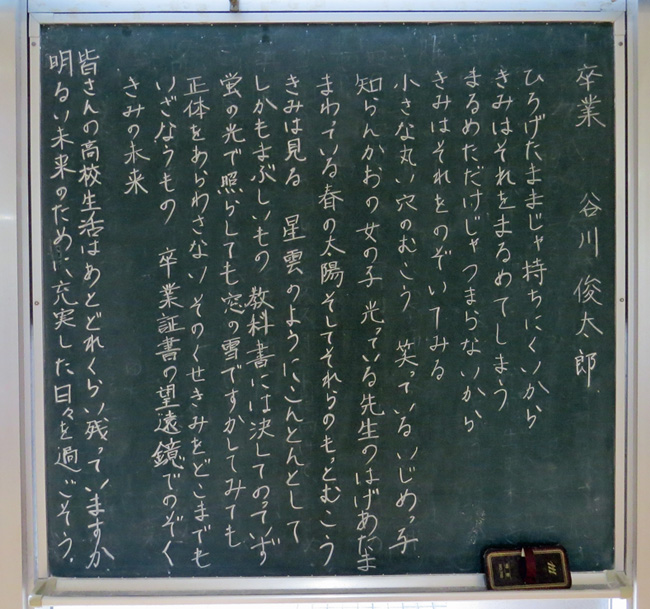 卒業　谷川 俊太郎
ひろげたままじゃ持ちにくいから
きみはそれをまるめてしまう
まるめただけじゃつまらないから
きみはそれをのぞいてみる
小さな丸い穴のむこう　笑っているいじめっ子
知らんかおの女の子　光っている先生のはげあたま
まわっている春の太陽　そしてそれらのもっとむこう
きみは見る　星雲のようにこんとんとして
しかもまぶしいもの　教科書には決してのっていず
蛍の光で照らしても　窓の雪ですかしてみても
正体をあらわさない　そのくせきみをどこまでも
いざなうもの　卒業証書の望遠鏡でのぞく
きみの未来
皆さんの高校生活はあとどれくらい残っていますか
明るい未来のために充実した日々を過ごそう。